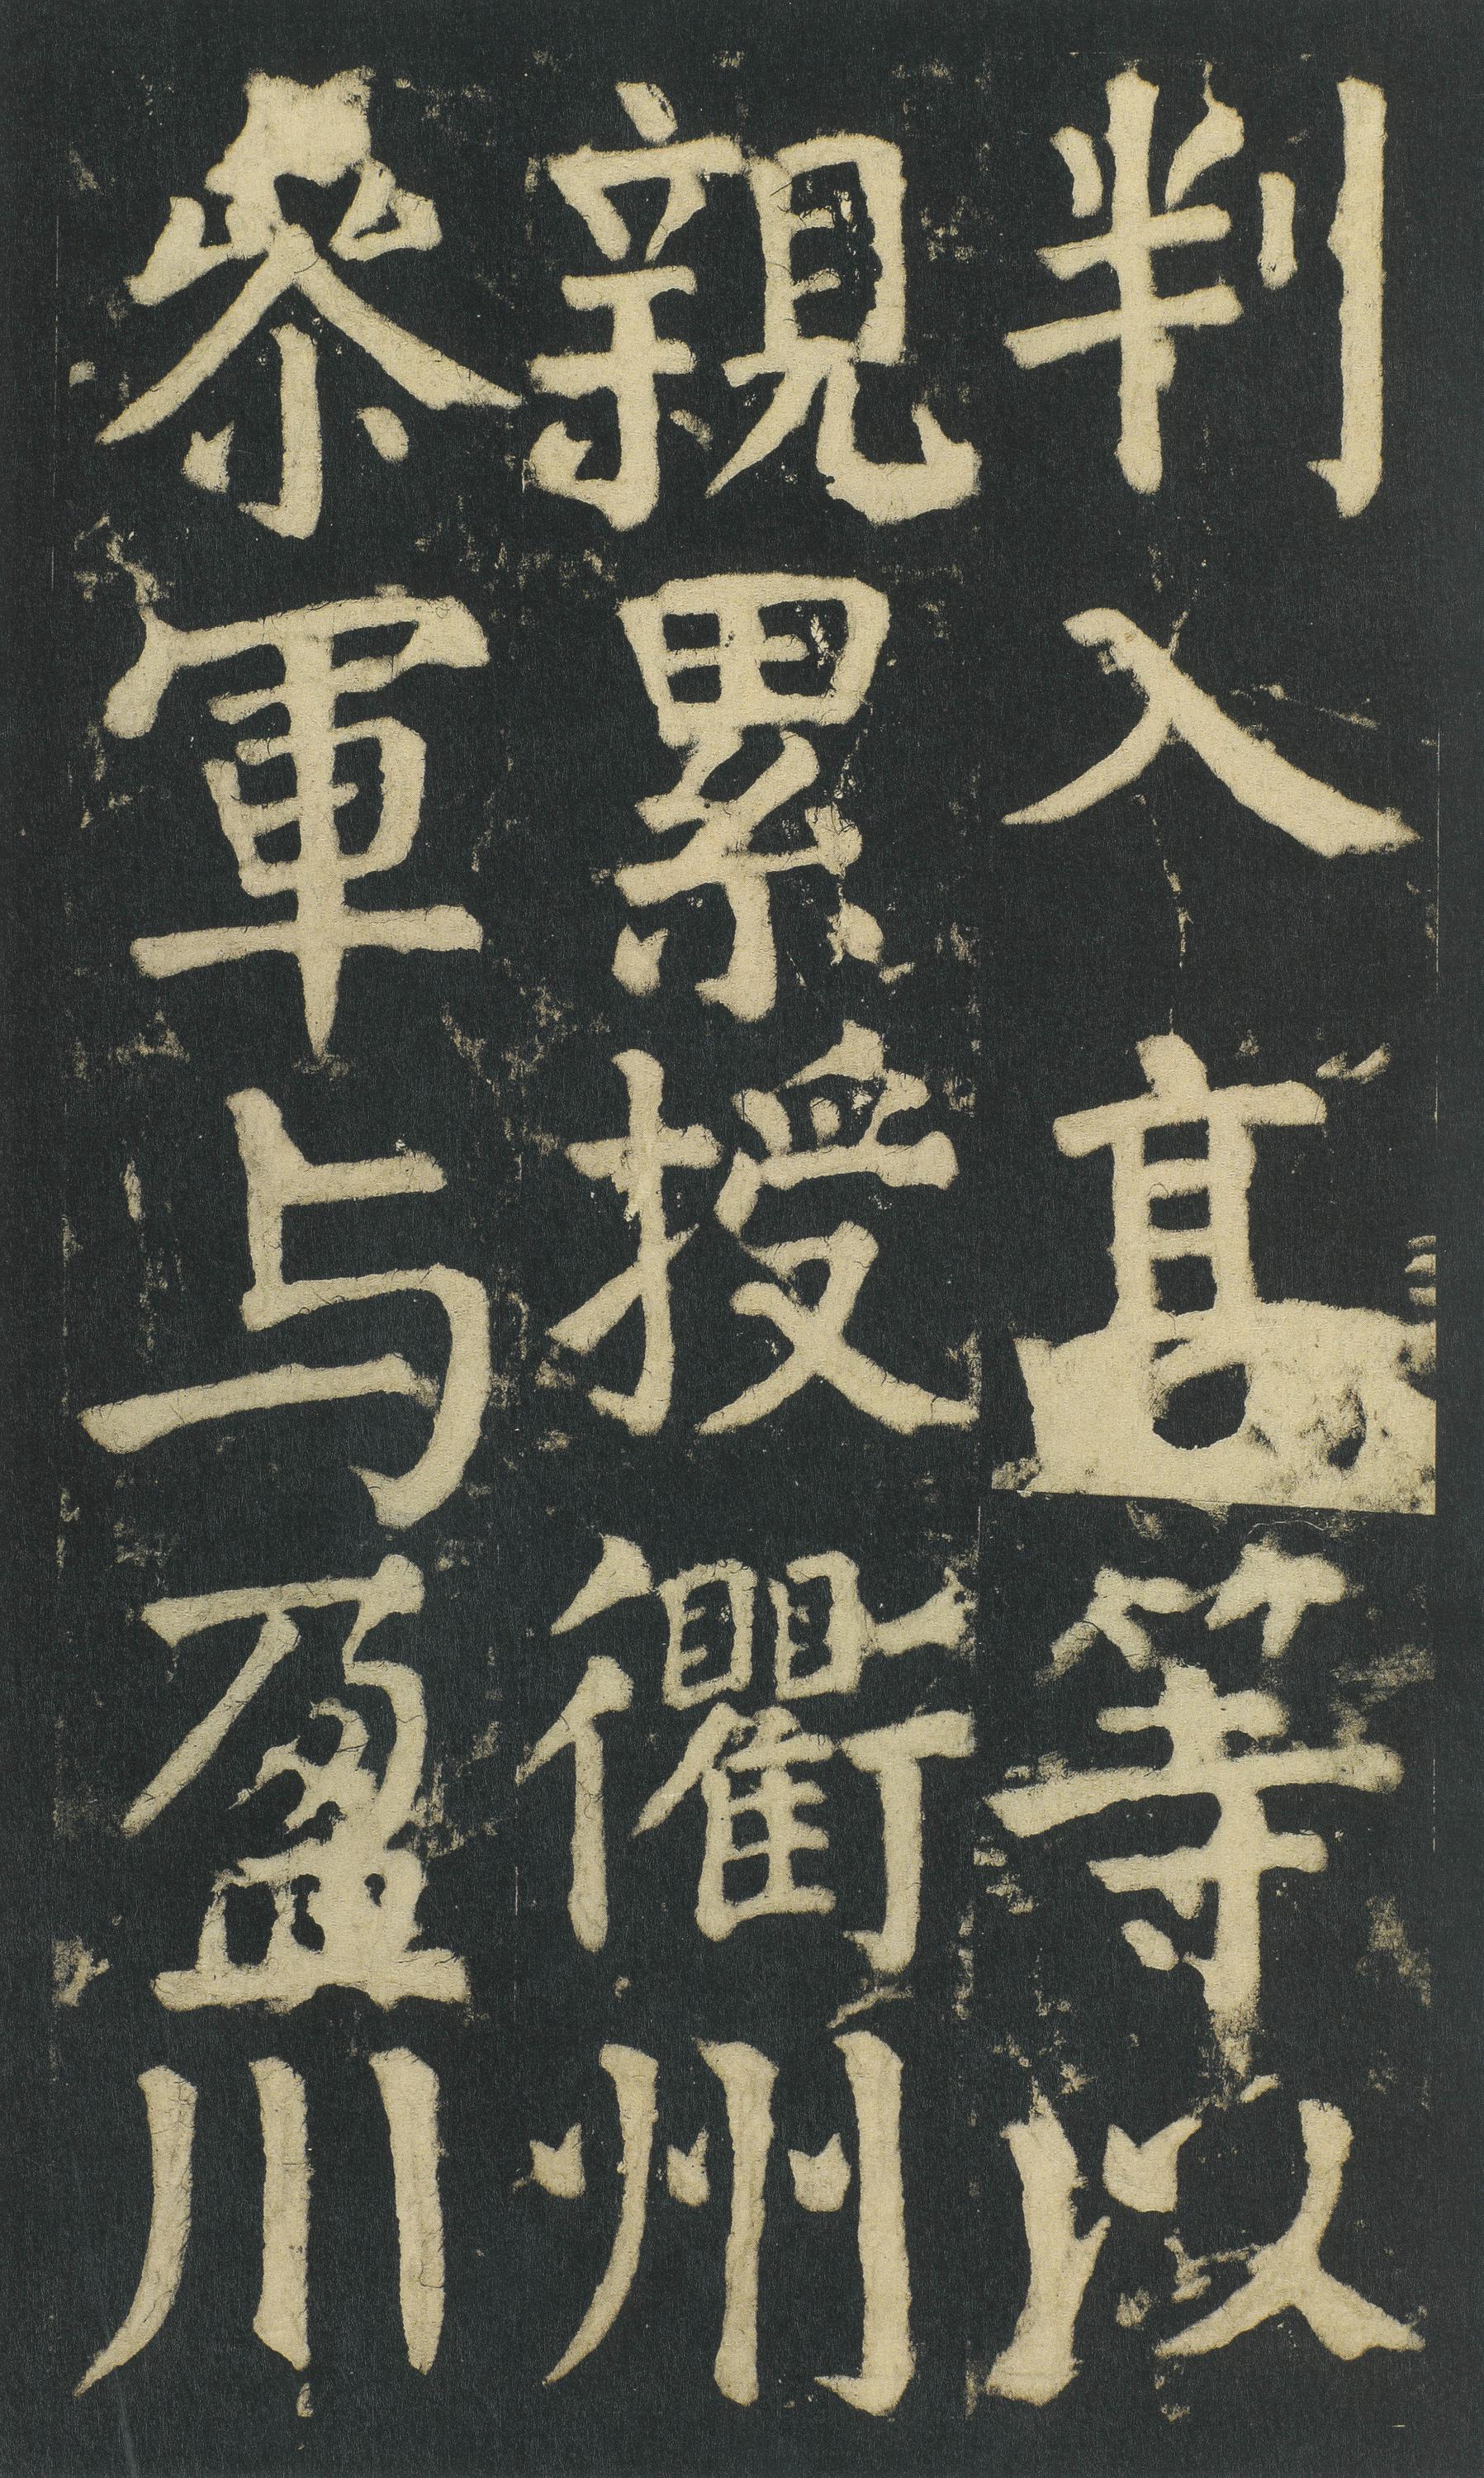 判入髙等以
親累授衢州
叅軍与盈川